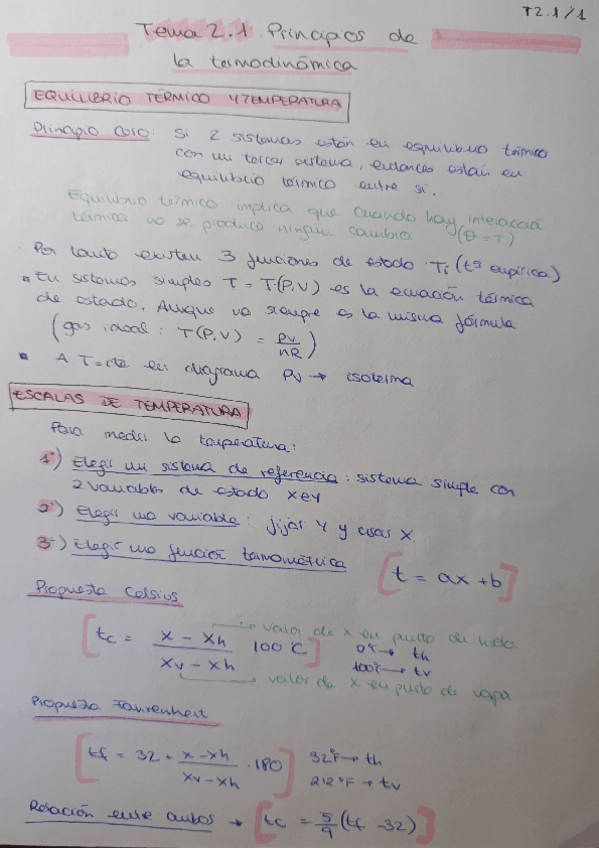 T2.1/1
Tema 2.1 Principios de
la termodinámica
EQUILIBRIO TÉRMICO Y TEMPERATURA
Principio Cero: Si 2 sistemas están en equilibrio térmico
con un tercer sistema, entonces están en
equilibrio térmico entre sí.
Equilibrio térmico implica que cuando hay interacción
térmica no se produce ningún cambio (θ = T)
Por tanto existen 3 funciones de estado Ti (tª empírica)
En sistemas simples T = T(P,V) es la ecuación térmica
de estado. Aunque no siempre es la misma fórmula
(gas ideal: T(P,V) = PV/nR)
A T=cte en diagrama PV → isoterma
ESCALAS DE TEMPERATURA
Para medir la temperatura:
1º) Elegir un sistema de referencia: sistema simple con
2 variables de estado x e y
2º) Elegir una variable: fijar Y y usar X.
3º) Elegir una función termométrica [t = ax + b]
Propuesta Celsius
[tc = (x - xh)/(xv - xh) 100ºC] → valor de x en punto de hielo
0ºC → th
100ºC → tv
→ valor de x en punto de vapor
Propuesta Fahrenheit
[tf = 32 + (x - xh)/(xv - xh) · 180] 32ºF → th
212ºF → tv
Relación entre ambos → [tc = 5/9 (tf - 32)]